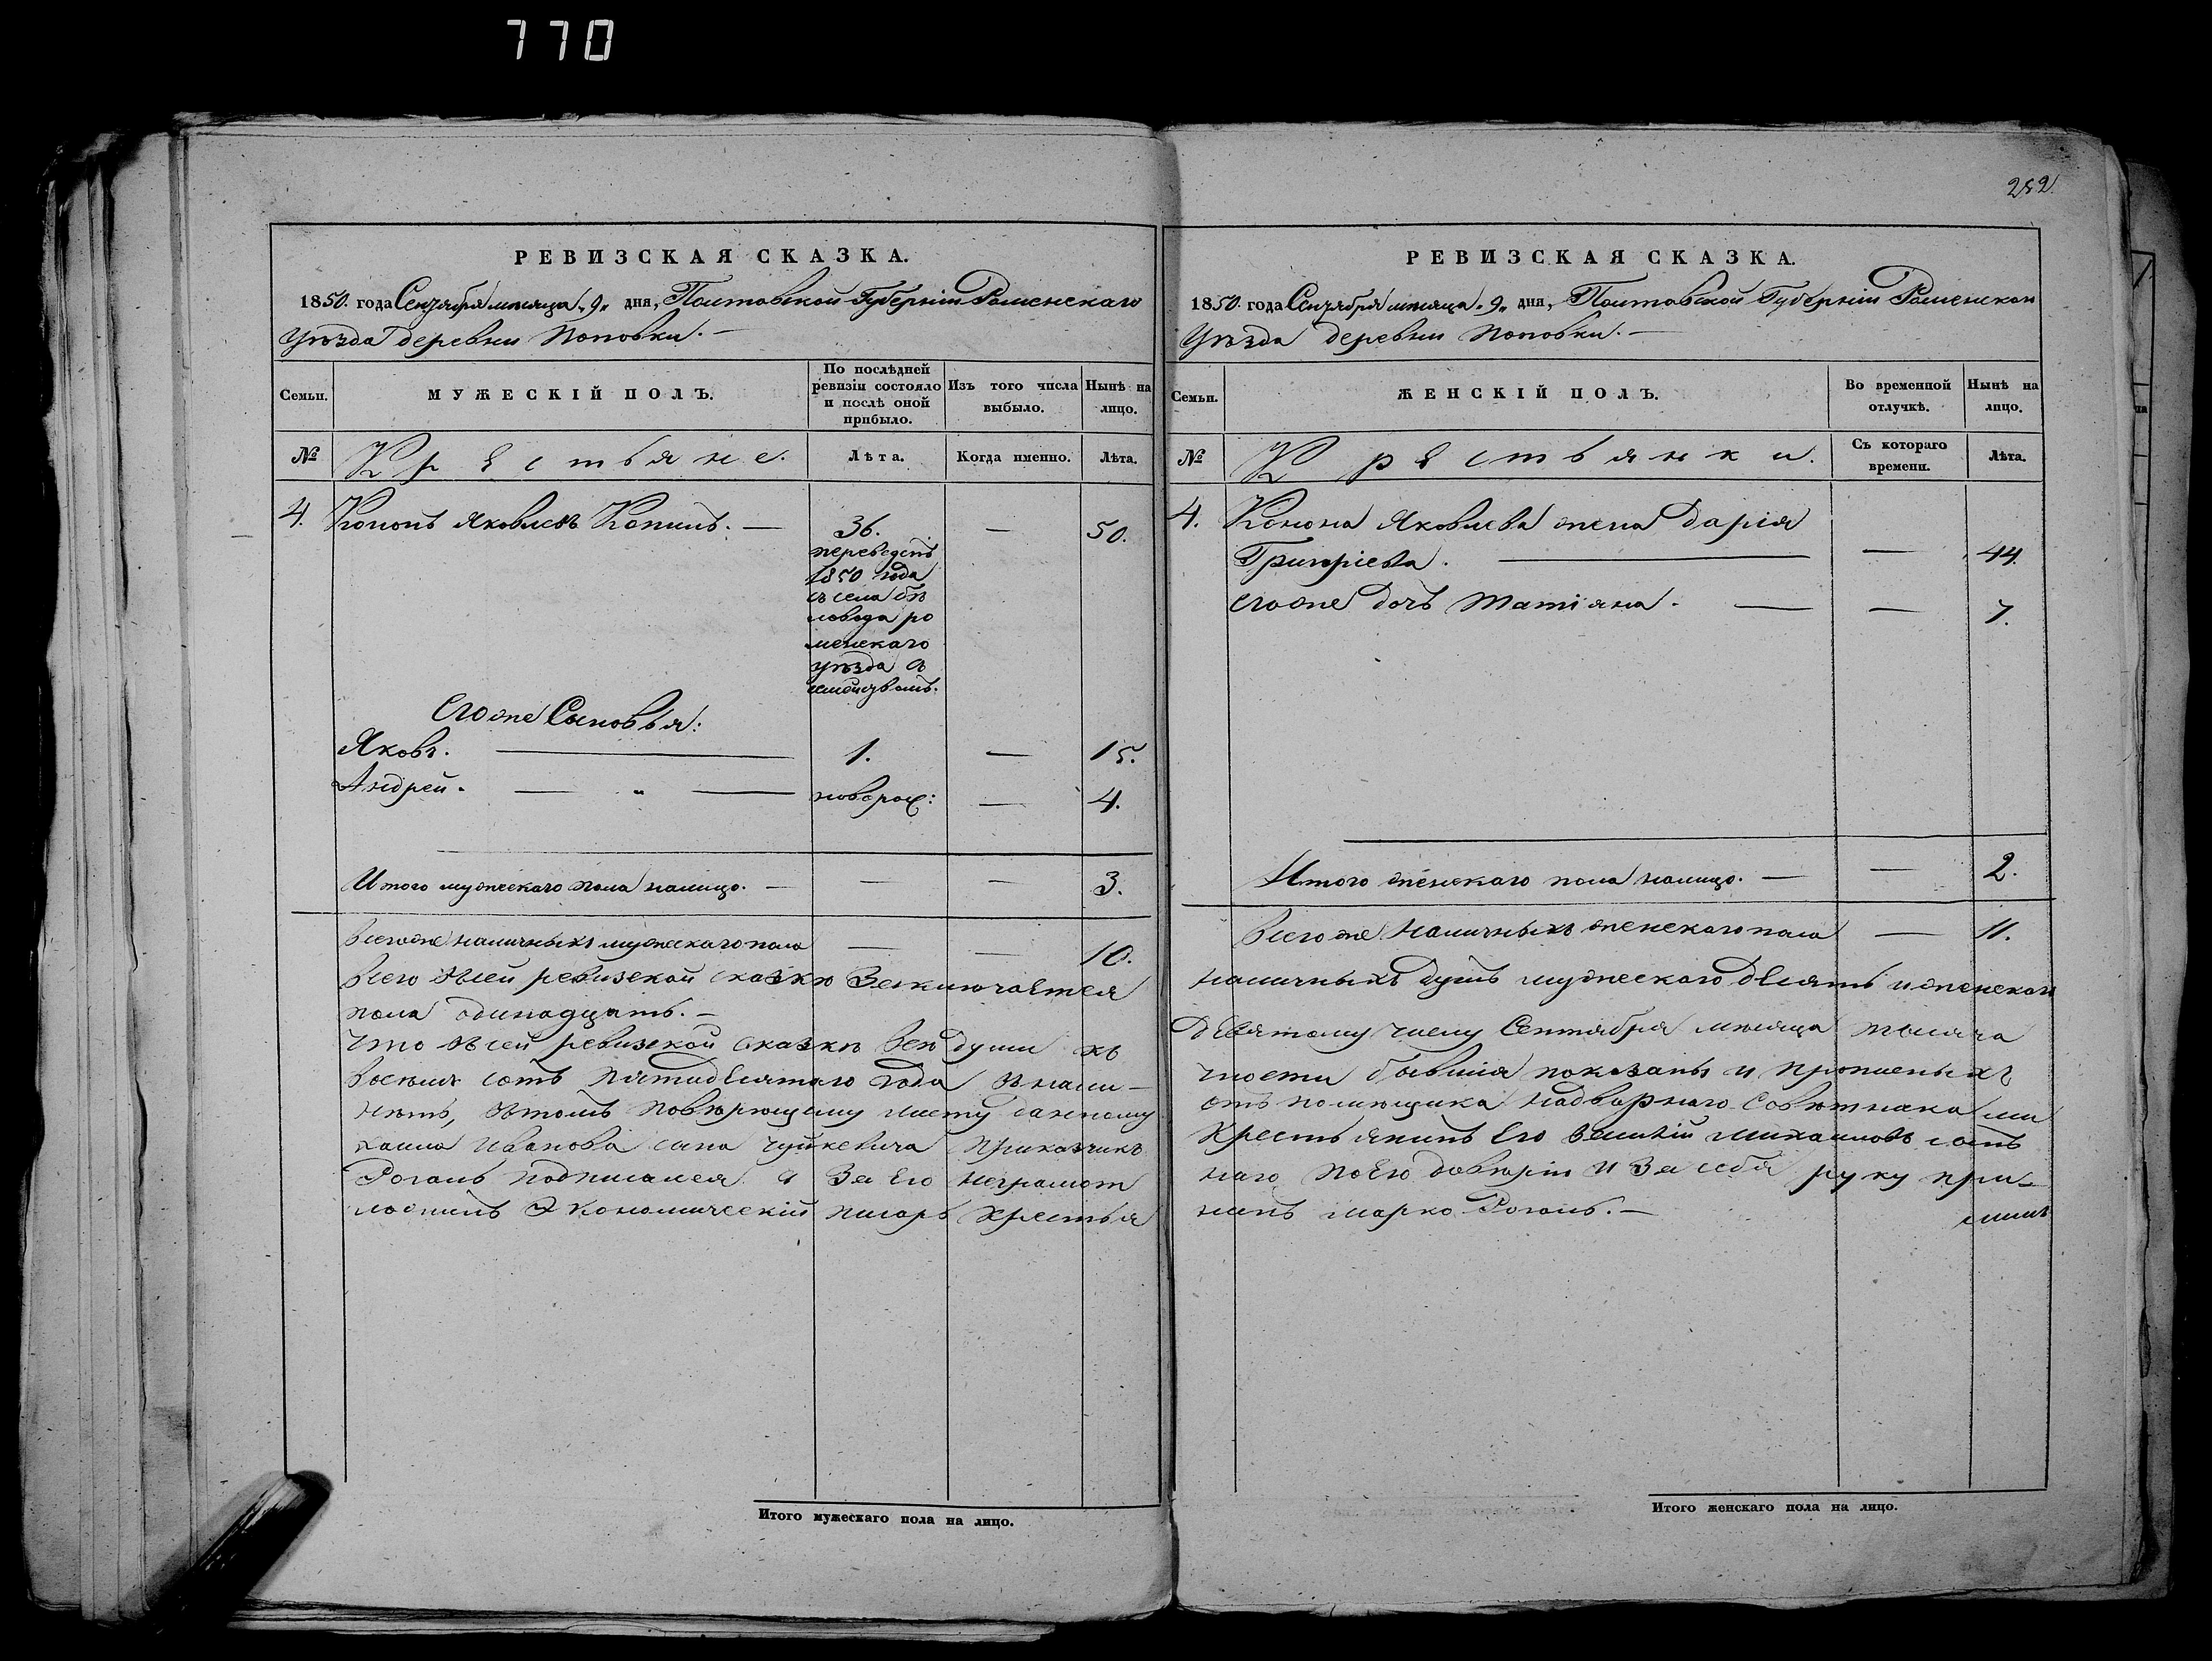 770
282
РЕВИЗСКАЯ СКАЗКА.
1850. года Сентября месяца „9„ дня, Полтавской Губерніи Роменскаго
Уѣзда деревни Поповки. —
Семьи.
МУЖЕСКІЙ ПОЛЪ.
По послѣдней ревизіи состояло и послѣ оной прибыло.
Изъ того числа выбыло.
Нынѣ на лицо.
№
Крестьяне.
Лѣта.
Когда именно.
Лѣта.
4. Кононъ Яковлевъ Копилъ. — 36. — 50.
переведенъ
1850 года
съ села бѣ
ловода ро
менскаго
уѣзда съ
семействомъ.
Егоже Сыновья:
Яковъ. — 1. — 15.
Андрей. — " — новорож: — 4.
Итого мужескаго пола налицо. — — — 3.
Всегоже наличныхъ мужескаго пола — — 10.
Всего всей ревизской сказкѣ Заключается
пола одинадцать. —
Что въсей ревизской сказкѣ всѣ души къ
Восемь сотъ пятидесятаго года вънали-
нѣтъ, втомъ повѣрющему листу данному
хаила Иванова сына Чуйкевича Приказчикъ
Рогаль подписался а За Его неграмот
ложилъ Экономический писарь крестья
Итого мужескаго пола на лицо.
РЕВИЗСКАЯ СКАЗКА.
1850. года Сентября месяца „9„ дня, Полтавской Губерніи Роменскаго
Уѣзда деревни Поповки. —
Семьи.
ЖЕНСКІЙ ПОЛЪ.
Во временной отлучкѣ.
Нынѣ на лицо.
№
Крестьянки.
Съ котораго времени.
Лѣта.
4. Конона Яковлева жена Дарія
Григоріева. — — 44.
Егоже дочь Татіяна. — — 7.
Итого женскаго пола налицо. — — 2.
Всегоже наличныхъ женскаго пола — 11.
наличныхъ душъ мужескаго десять и женскаго
Девятому числу Сентября месяца тысяча
чности бывшія показаны и прописныхъ
отъ помещика надворнаго совѣтника ми
Крестьянинъ Его
наго поЕго довѣрію и За себя руку при-
нинъ Марко Рогаль. —